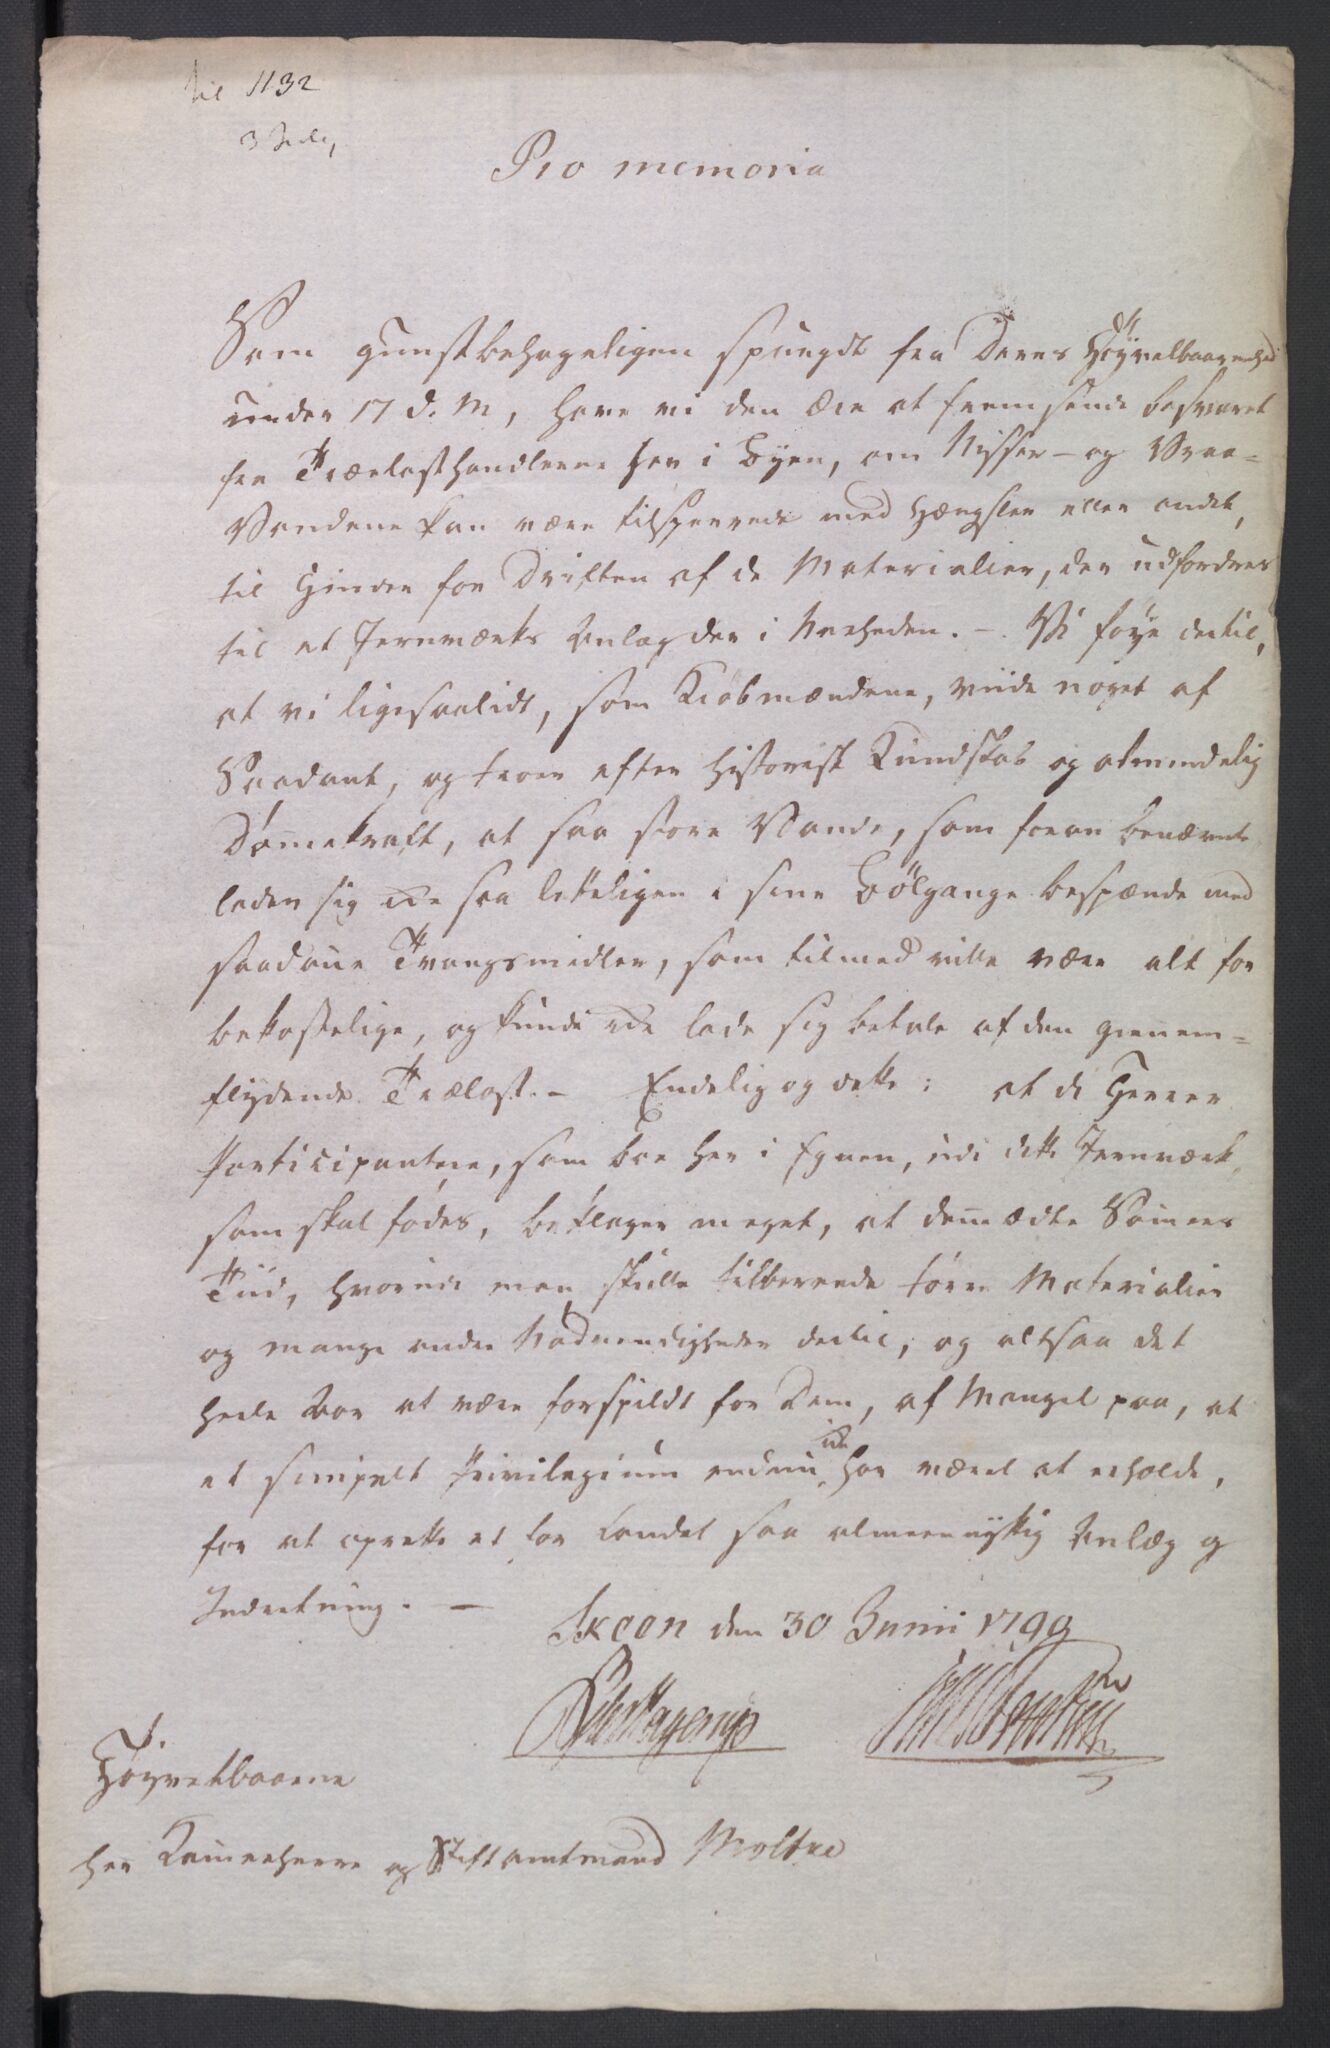 til 1132
3 Julij
Pro memoria
Som gunstbehageligen spurgdt fra Deres Höyvelbaarenhed
under 17 d. M, have vi den Ære at fremsende besvaret
fra Trælasthandlerne her i Byen, om Nisser- og Vraa-
Vandene kan være tilsperrede med Hængsler eller andet,
til Hinder for Driften af de Materialier, der udfordres
til et Jernværks Anlæg der i Nærheden. - Vi föye dertil,
at vi ligesaalidt, som Kiöbmændene, viide noget af
Saadant, og troer efter historisk Kundskab og almindelig
Dømmekraft, at saa store Vande, som foran benævnte
lader sig icke saa letteligen i sine Bölgange bespænde med
saadanne Tvangsmidler, som tilmed ville være alt for
bekostelige, og kunde icke lade sig betale af den gienem-
flydende Trælast. - Endelig og dette: at de Herrer
Participantere, som boe her i Egnen, udi dette Jernværk,
som skal födes, beklager meget, at denne ædle Sommer
Tiid, hvorudi man skulle tilberede tørre Materialier
og mange andre Nödvendigheder dertil, og altsaa det
heele Aar at være forspildt for Dem, af Mangel paa, at
et simpelt Privilegium endnu icke har været at erholde,
for at oprette et for Landet saa almeennyttig Anlæg og
Indretning. -
Skeen den 30 Junii 1799
Höyvelbaarne
Her Kammerherre og Stiftamtmand Moltke